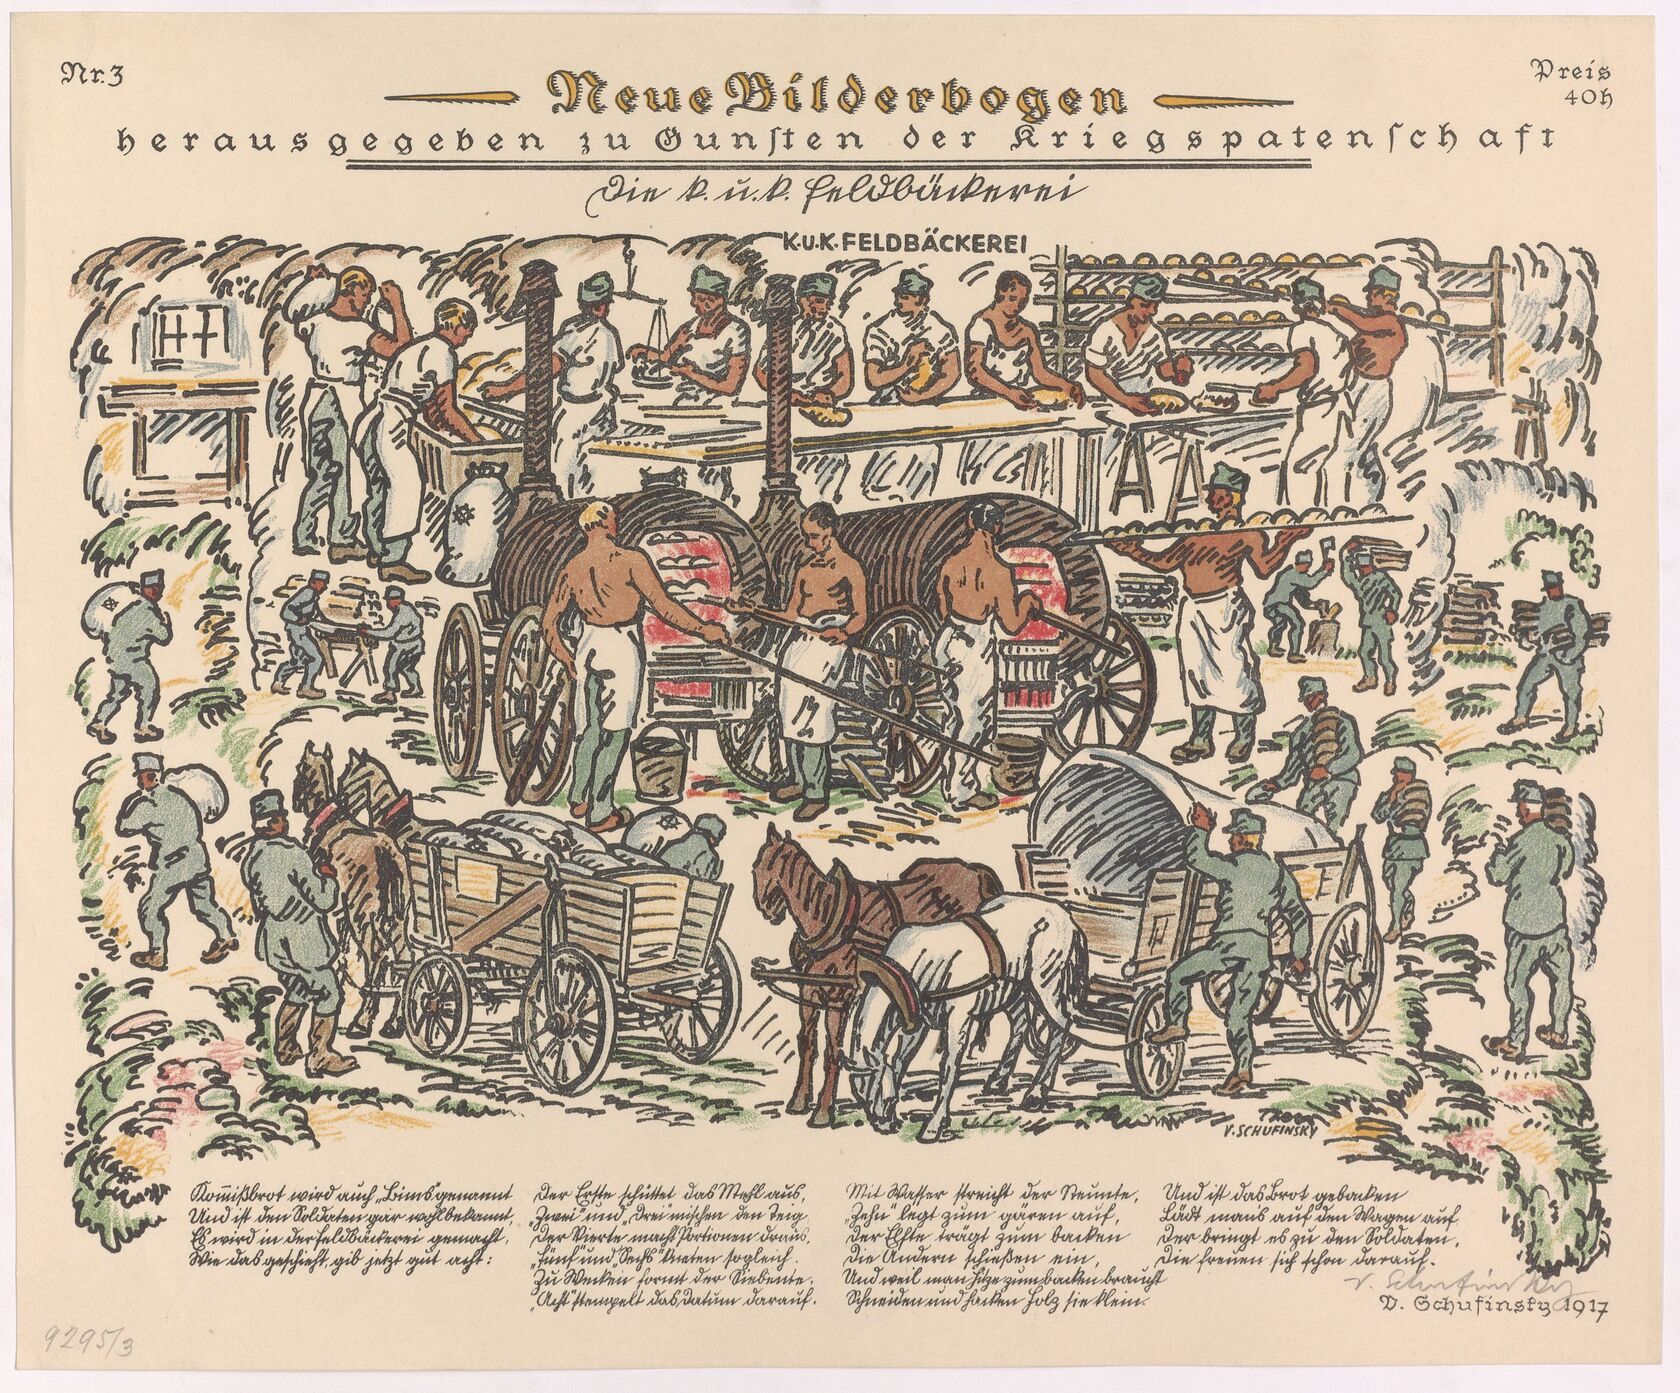 Nr. 3
Preis
40h
Neue Bilderbogen
herausgegeben zu Gunsten der Kriegspatenschaft
Die k. u. k. Feldbäckerei
K.u.K. FELDBÄCKEREI
V. SCHUFINSKY
Kom̄ißbrot wird auch „Bims" genannt
Und ist den Soldaten gar wohlbekannt,
Es wird in der Feldbäckerei gemacht,
Wie das geschieht, gib jetzt gut acht:
Der Erste schüttet das Mehl aus,
„Zwei" und „Drei" mischen den Teig
Der Vierte macht Portionen draus,
„Fünf" und „Sechs" kneten sogleich.
Zu Wecken formt der Siebente,
„Acht" stempelt das Datum darauf.
Mit Wasser streicht der Neunte,
„Zehn" legt zum gären auf,
Der Elfte trägt zum backen
Die Andern schießen ein,
Und weil man Hitze zum backen braucht
Schneiden und hacken Holz sie klein.
Und ist das Brot gebacken
Lädt man's auf den Wagen auf
Der bringt es zu den Soldaten,
Die freuen sich schon darauf.
V. Schufinsky
V. Schufinsky 1917
9295/3